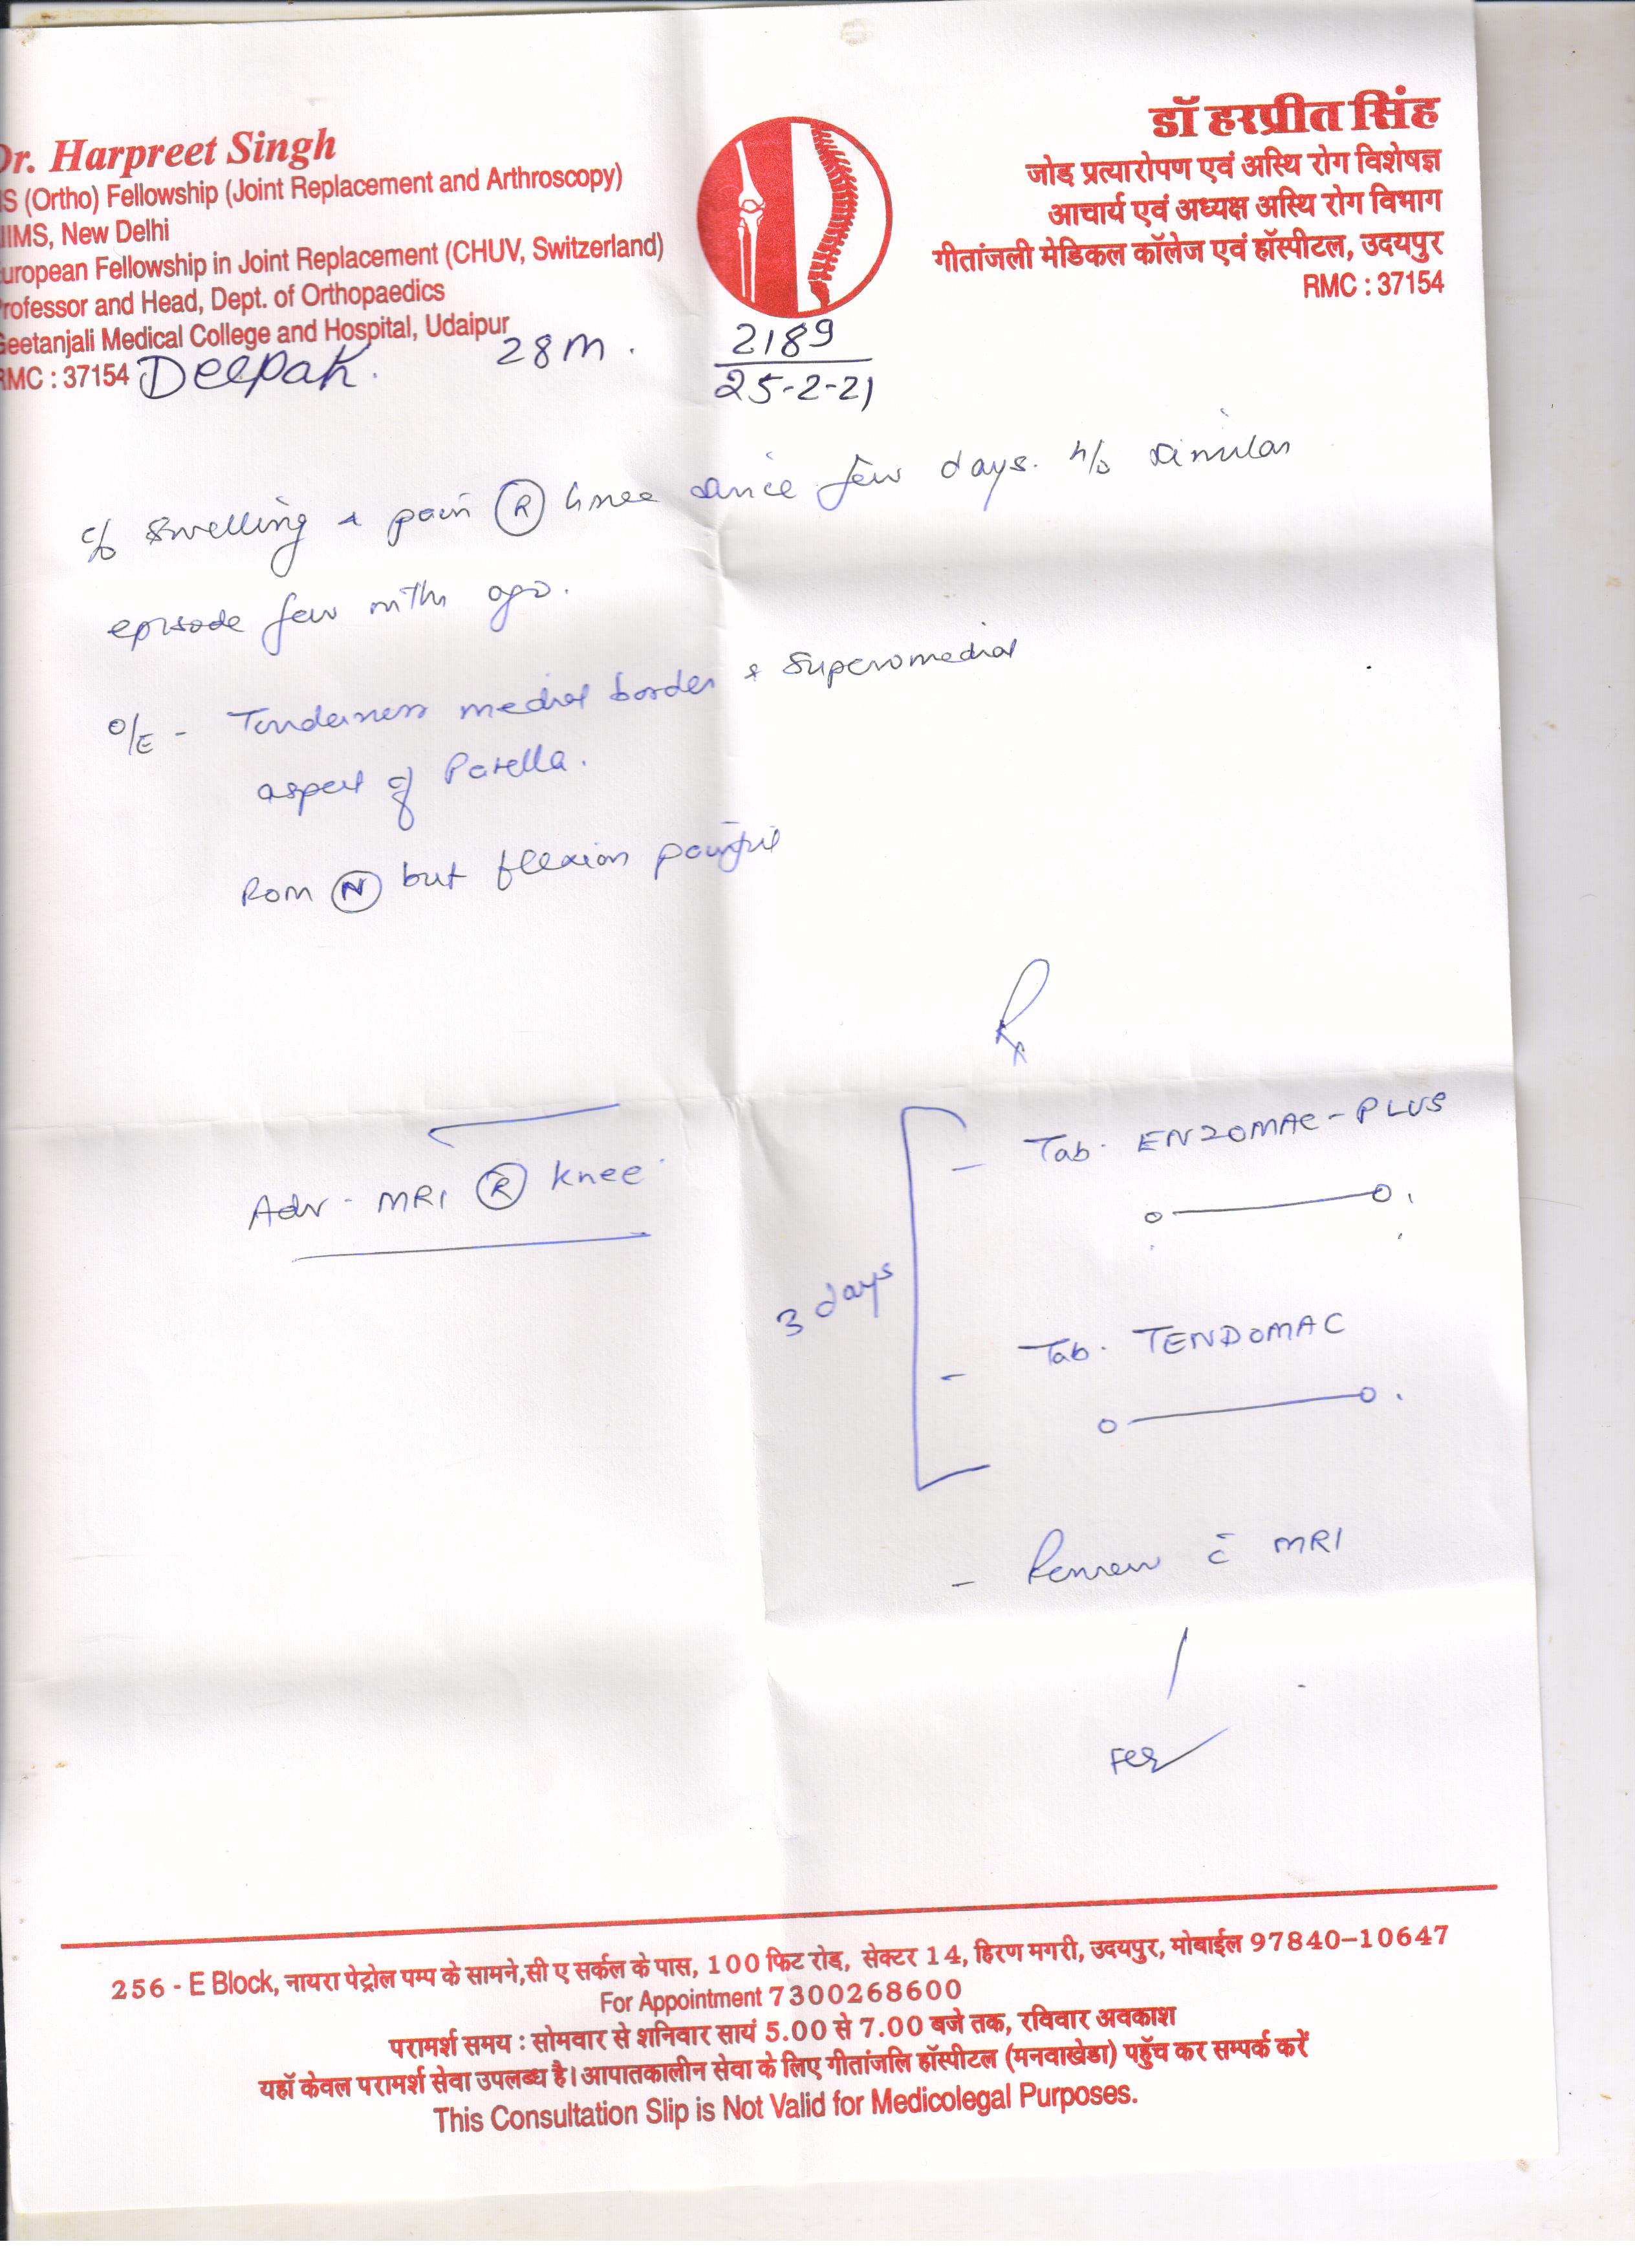 Dr. Harpreet Singh
S (Ortho) Fellowship (Joint Replacement and Arthroscopy)
IIMS, New Delhi
uropean Fellowship in Joint Replacement (CHUV, Switzerland)
rofessor and Head, Dept. of Orthopaedics
Geetanjali Medical College and Hospital, Udaipur
RMC : 37154
डॉ हरप्रीत सिंह
जोड प्रत्यारोपण एवं अस्थि रोग विशेषज्ञ
आचार्य एवं अध्यक्ष अस्थि रोग विभाग
गीतांजली मेडिकल कॉलेज एवं हॉस्पीटल, उदयपुर
RMC : 37154
Deepak. 28 m.
2189
25-2-21
c/o swelling & pain R knee since few days. h/o similar
episode few mths ago.
O/E - Tenderness medial border & superomedial
aspect of Patella.
ROM N but flexion painful
Rx
Adv - MRI R knee
3 days
- Tab. ENZOMAC-PLUS
- Tab. TENDOMAC
- Review c̄ MRI
256 - E Block, नायरा पेट्रोल पम्प के सामने,सी ए सर्कल के पास, 100 फिट रोड, सेक्टर 14, हिरण मगरी, उदयपुर, मोबाईल 97840–10647
For Appointment 7300268600
परामर्श समय : सोमवार से शनिवार सायं 5.00 से 7.00 बजे तक, रविवार अवकाश
यहाँ केवल परामर्श सेवा उपलब्ध है। आपातकालीन सेवा के लिए गीतांजलि हॉस्पीटल (मनवाखेडा) पहुँच कर सम्पर्क करें
This Consultation Slip is Not Valid for Medicolegal Purposes.